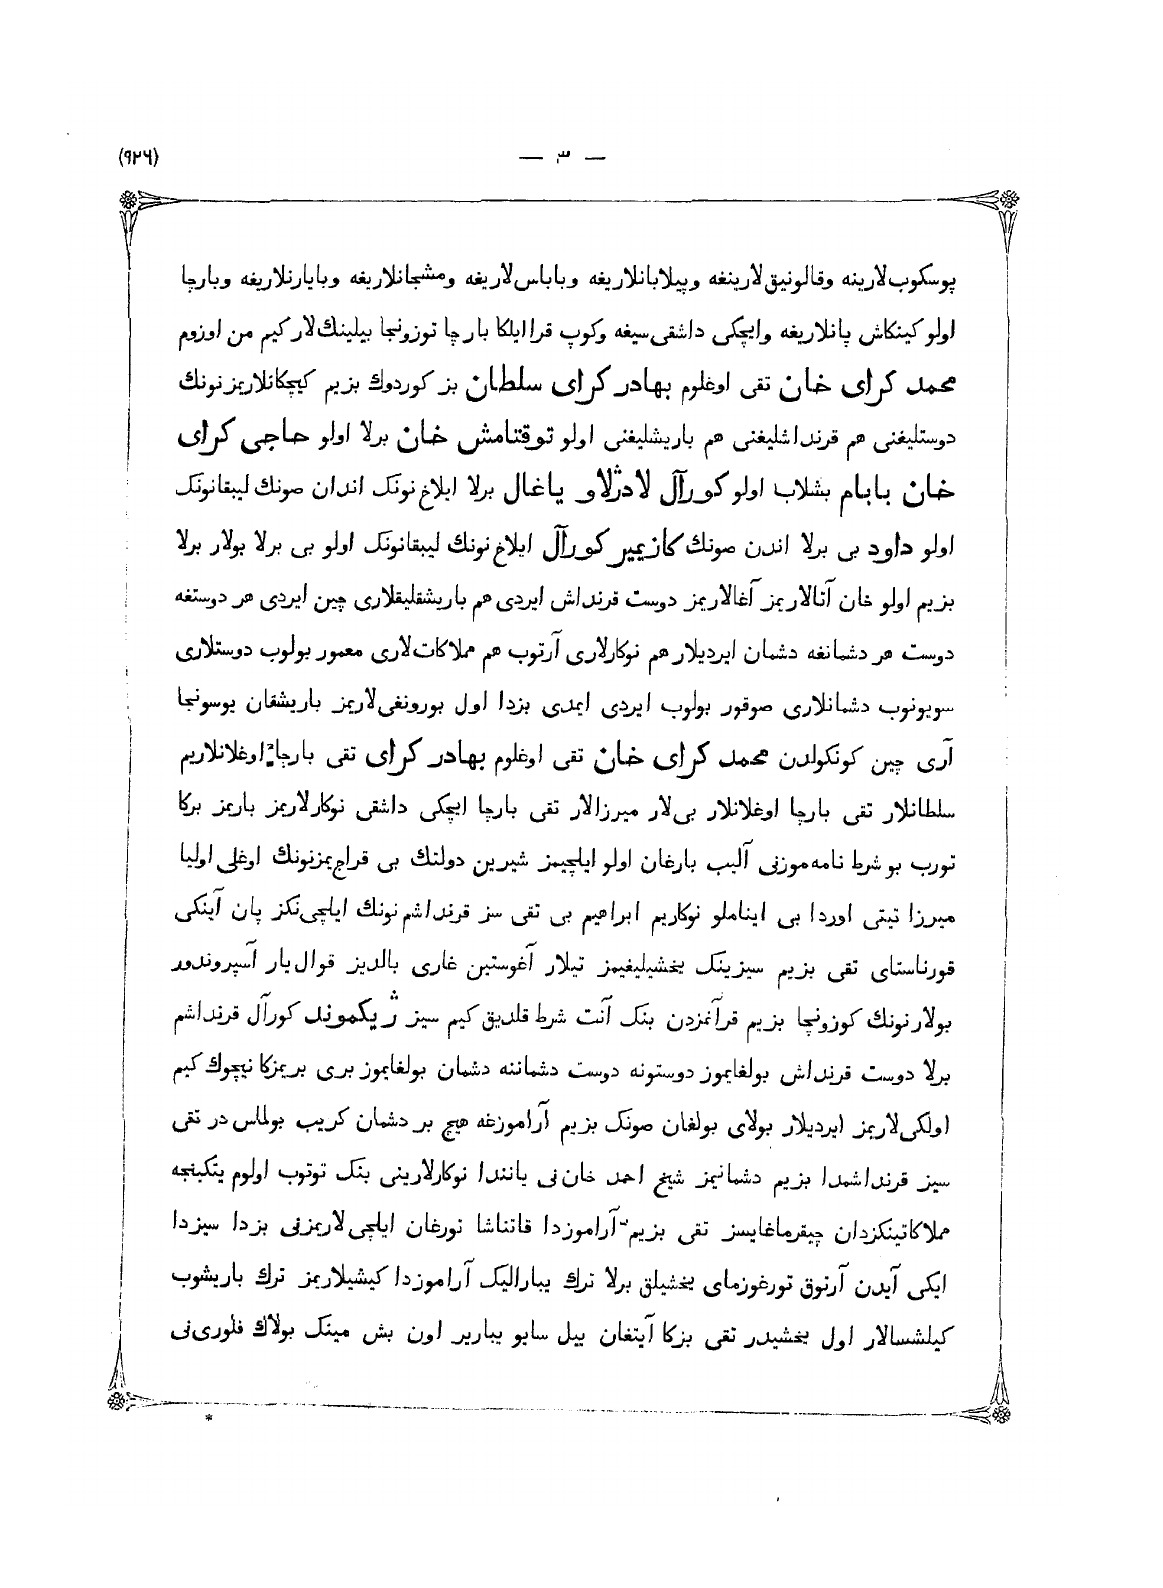 (٩٢٦) — ٣ —
پوسكوب‌لارينه وقالونيق‌لارينغه وپيلابانلاريغه وباباس‌لاريغه ومشجانلاريغه وبايارنلاريغه وبارچا
اولو كينكاش پانلاريغه وايچكى داشقى‌سيغه وكوپ قراايلكا بارچا توزونجا بيلينك‌لار كيم من اوزوم
محمد كراى خان تقى اوغلوم بهادر كراى سلطان بز كوردوك بزيم كيچكانلاريمزنونك
دوستليغنى هم قرنداشليغنى هم باريشليغنى اولو توقتامش خان برلا اولو حاجى كراى
خان بابام بشلاب اولو كورآل لادثلاو ياغال برلا ايلاغ‌نونك اندان صونك ليبقانونك
اولو داود بى برلا اندن صونك كازيمير كورآل ايلاغ‌نونك ليبقانونك اولو بى برلا بولار برلا
بزيم اولو خان آتالاريمز آغالاريمز دوست قرنداش ايردى هم باريشقليقلارى چين ايردى هر دوستغه
دوست هر دشمانغه دشمان ايرديلار هم نوكارلارى آرتوب هم مملاكات‌لارى معمور بولوب دوستلارى
سويونوب دشمانلارى صوقور بولوب ايردى ايمدى بزدا اول بورونغى‌لاريمز باريشقان يوسونجا
آرى چين كونكولدن محمد كراى خان تقى اوغلوم بهادر كراى تقى بارچا اوغلانلاريم
سلطانلار تقى بارچا اوغلانلار بى‌لار ميرزالار تقى بارچا ايچكى داشقى نوكارلاريمز باريمز بركا
تورب بو شرط نامه‌موزنى آليب بارغان اولو ايلچيمز شيرين دولتك بى قراجمزنونك اوغلى اوليا
ميرزا تيتى اوردا بى ايناملو نوكاريم ابراهيم بى تقى سز قرنداشم‌نونك ايلچى‌نكز پان آينكى
قورناستاى تقى بزيم سيزينك يخشيليغيمز تيلار آغوستين غارى بالديز قوال‌يار آسپروندور
بولارنونك كوزونچا بزيم قرآنمزدن بنك آنت شرط قلديق كيم سيز ژيكموند كورآل قرنداشم
برلا دوست قرنداش بولغايموز دوستونه دوست دشماننه دشمان بولغايموز برى بريمزكا نيچوك كيم
اولكى‌لاريمز ايرديلار بولاى بولغان صونك بزيم آراموزغه هيچ بر دشمان كريب بولماس در تقى
سيز قرنداشمدا بزيم دشمانيمز شيخ احمد خان‌نى يانندا نوكارلارينى بنك توتوب اولوم يتكينجه
مملاكاتينكزدان چيقرماغايسز تقى بزيم آراموزدا قاتناشا تورغان ايلچى‌لاريمزنى بزدا سيزدا
ايكى آيدن آرتوق تورغوزماى يخشيلق برلا ترك يباراليك آراموزدا كيشيلاريمز ترك باريشوب
كيلشسالار اول يخشيدر تقى بزكا آيتغان ييل سايو يبارير اون بش مينك بولاك فلورى‌نى
*